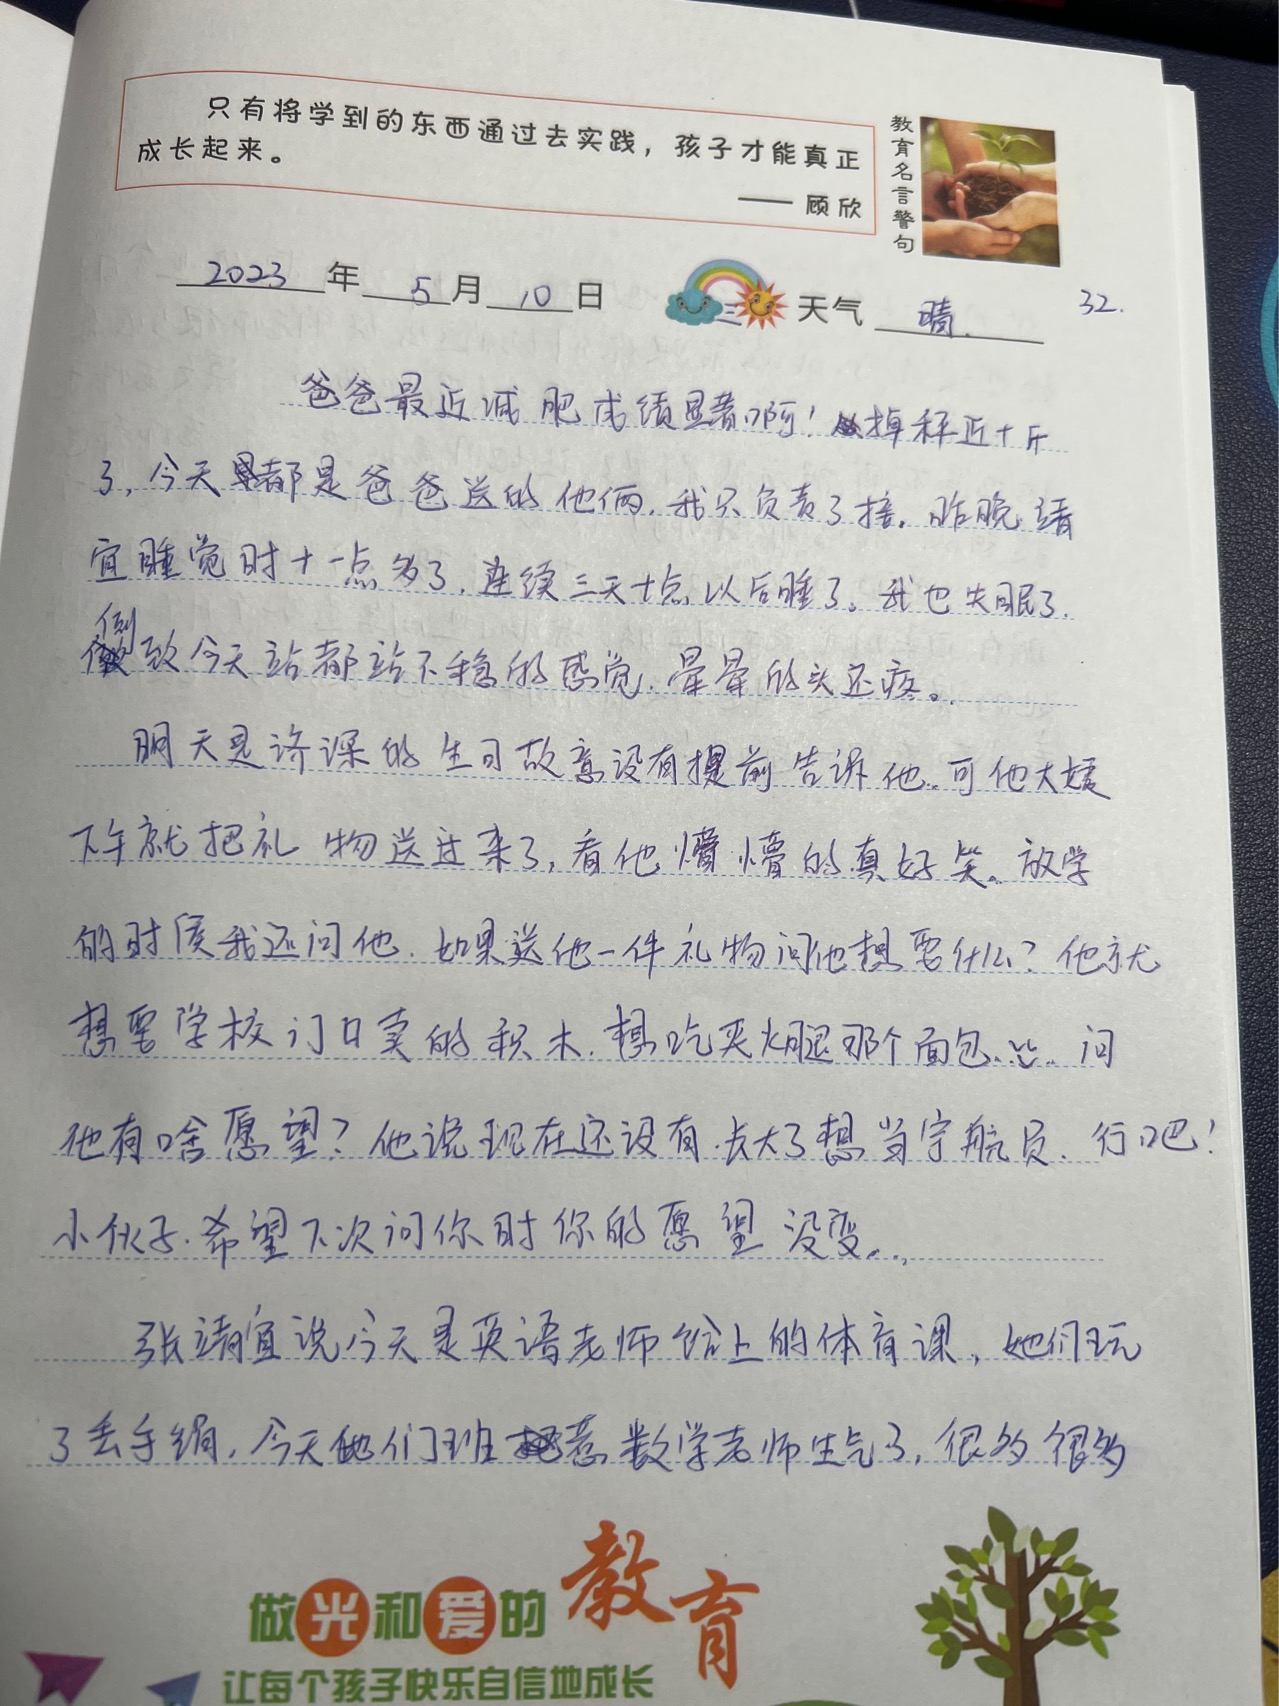 只有将学到的东西通过去实践，孩子才能真正
成长起来。
—— 顾欣
教育名言警句
2023年5月10日 天气 晴. 32.
爸爸最近减肥成绩显著啊！掉秤近十斤
了，今天都是爸爸送的他俩，我只负责了接。昨晚靖
宜睡觉时十一点多了，连续三天十点以后睡了。我也失眠了，
倒致今天站都站不稳的感觉，晕晕的头还疼。
明天是济深的生日故意没有提前告诉他，可他大嫒
下午就把礼物送过来了，看他懵懵的真好笑。放学
的时候我还问他，如果送他一件礼物问他想要什么？他就
想要学校门口卖的积木，想吃夹火腿那个面包。问
他有啥愿望？他说现在还没有，长大了想当宇航员，行吧！
小伙子，希望下次问你时你的愿望没变。
张靖宜说今天是英语老师给上的体育课，她们玩
了丢手绢，今天她们班惹数学老师生气了，很多很多
做光和爱的教育
让每个孩子快乐自信地成长